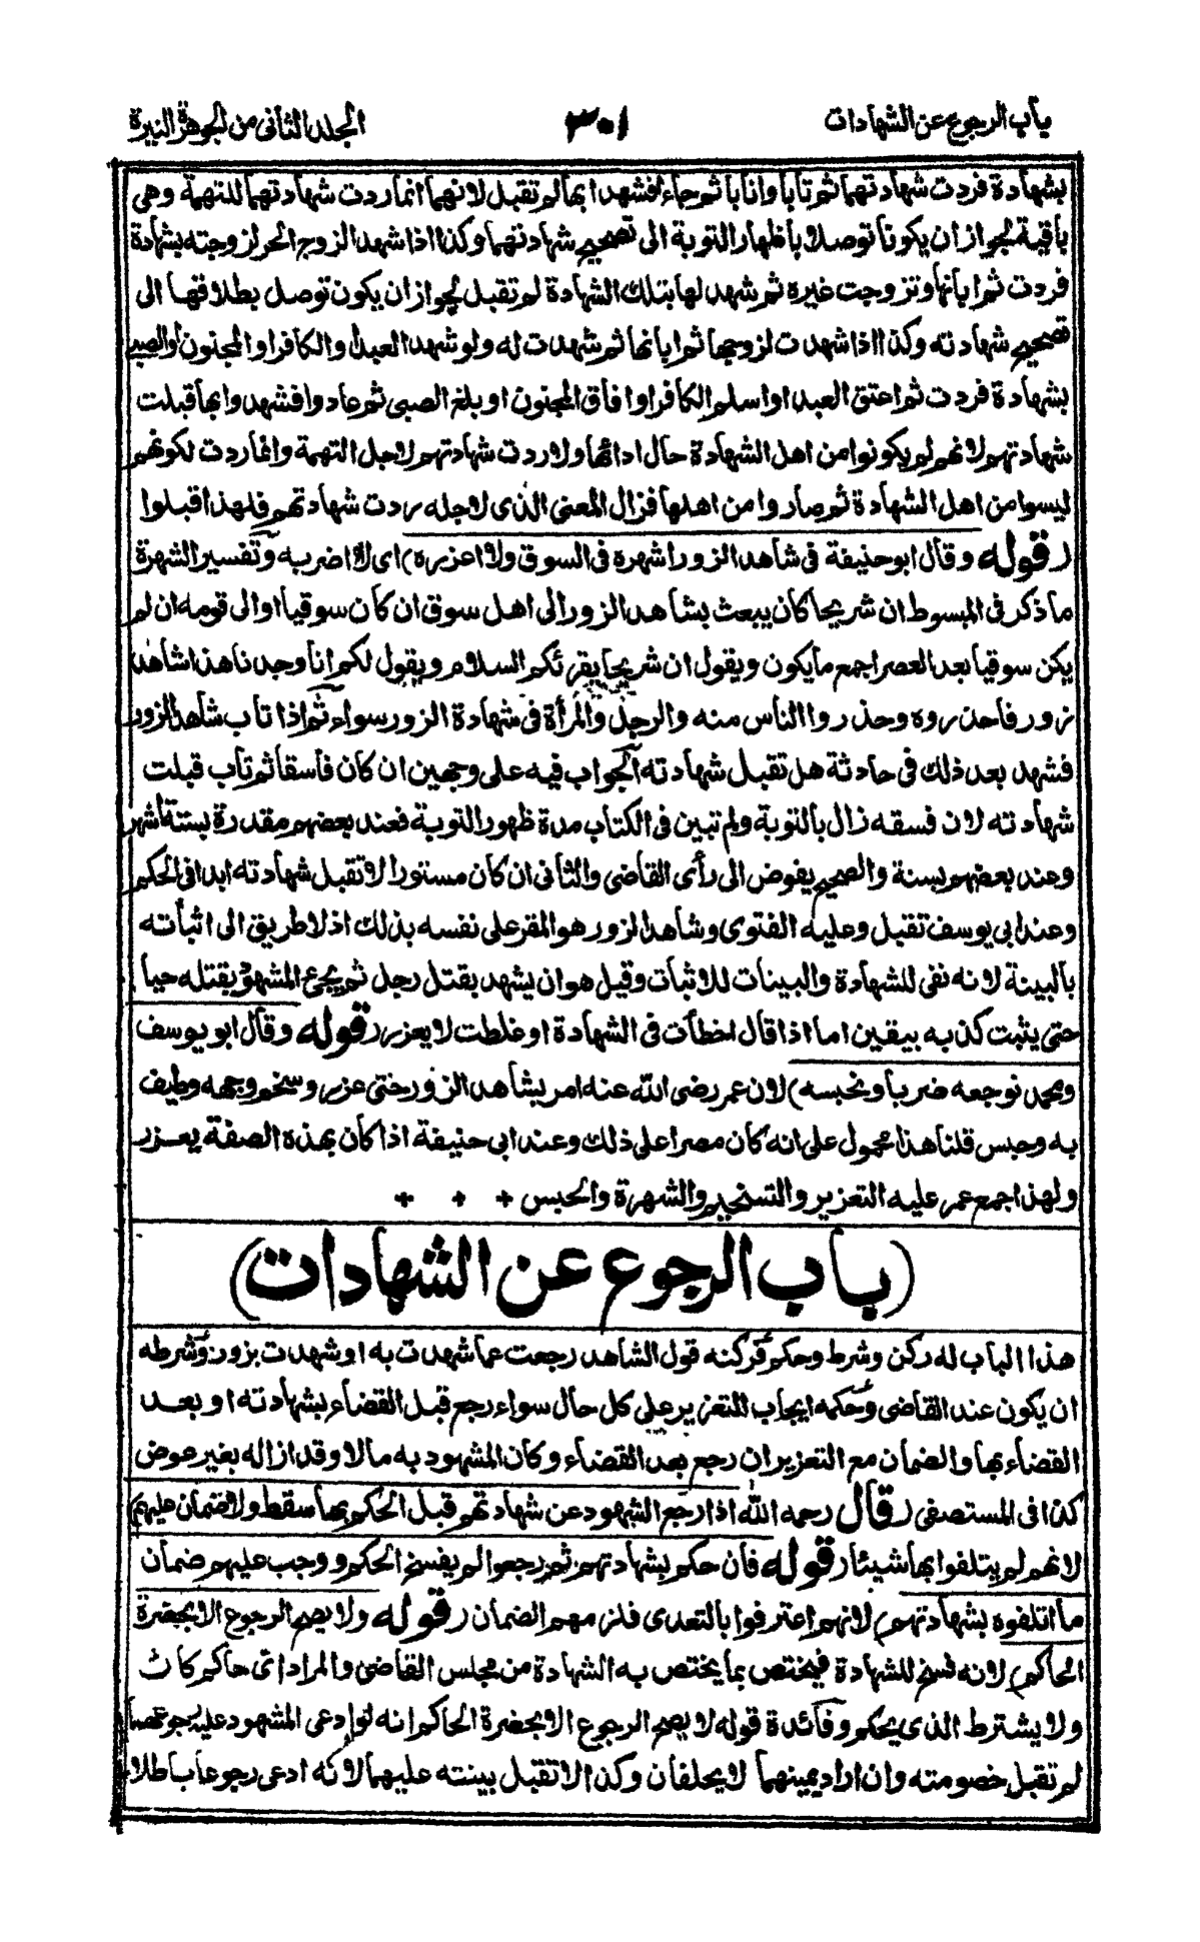 باب الرجوع عن الشهادات ٣٠١ الجلد الثانى من الجوهرة النيرة
بشهادة فردت شهادتهما ثم تابا وانابا ثم جاءا فشهدا بها لم تقبل لانهما انما ردت شهادتهما للتهمة وهى
باقية لجواز ان يكونا توصلا باظهار التوبة الى تصحيح شهادتهما وكذا اذا شهد الزوج الحر لزوجته بشهادة
فردت ثم ابانها وتزوجت غيره ثم شهد لها بتلك الشهادة لم تقبل لجواز ان يكون توصل بطلاقها الى
تصحيح شهادته وكذا اذا شهدت لزوجها ثم ابانها ثم شهدت له ولو شهد العبد او الكافر او المجنون او الصبى
بشهادة فردت ثم اعتق العبد او اسلم الكافر او افاق المجنون او بلغ الصبى ثم عادوا فشهدوا بها قبلت
شهادتهم لانهم لم يكونوا من اهل الشهادة حال ادائها ولا ردت شهادتهم لاجل التهمة وانما ردت لكونهم
ليسوا من اهل الشهادة ثم صاروا من اهلها فزال المعنى الذى لاجله ردت شهادتهم فلهذا قبلوا
(قوله وقال ابو حنيفة فى شاهد الزور اشهره فى السوق ولا اعزره) اى لا اضربه وتفسير الشهرة
ما ذكر فى المبسوط ان شريحا كان يبعث بشاهد الزور الى اهل سوق ان كان سوقيا او الى قومه ان لم
يكن سوقيا بعد العصر اجمع ما يكون ويقول ان شريحا يقرئكم السلام ويقول لكم انا وجدنا هذا شاهد
زور فاحذروه وحذروا الناس منه والرجل والمرأة فى شهادة الزور سواء ثم اذا تاب شاهد الزور
فشهد بعد ذلك فى حادثة هل تقبل شهادته الجواب فيه على وجهين ان كان فاسقا ثم تاب قبلت
شهادته لان فسقه زال بالتوبة ولم تبين فى الكتاب مدة ظهور التوبة فعند بعضهم مقدرة بستة اشهر
وعند بعضهم بسنة والصحيح يفوض الى رأى القاضى والثانى ان كان مستورا لا تقبل شهادته ابدا فى الحكم
وعند ابى يوسف تقبل وعليه الفتوى وشاهد الزور هو المقر على نفسه بذلك اذ لا طريق الى اثباته
بالبينة لانه نفى للشهادة والبينات للاثبات وقيل هو ان يشهد بقتل رجل ثم يجئ المشهود بقتله حيا
حتى يثبت كذبه بيقين اما اذا قال اخطأت فى الشهادة او غلطت لا يعزر (قوله وقال ابو يوسف
ومحمد نوجعه ضربا ونحبسه) لان عمر رضى الله عنه امر بشاهد الزور حتى عزر وسخم وجهه وطيف
به وحبس قلنا هذا محمول على انه كان مصرا على ذلك وعند ابى حنيفة اذا كان بهذه الصفة يعزر
ولهذا اجمع عمر عليه التعزير والتسخيم والشهرة والحبس + + +
(باب الرجوع عن الشهادات)
هذا الباب له ركن وشرط وحكم فركنه قول الشاهد رجعت عما شهدت به او شهدت بزور وشرطه
ان يكون عند القاضى وحكمه ايجاب التعزير على كل حال سواء رجع قبل القضاء بشهادته او بعد
القضاء بها والضمان مع التعزير ان رجع بعد القضاء وكان المشهود به مالا وقد ازاله بغير عوض
كذا فى المستصفى (قال رحمه الله اذا رجع الشهود عن شهادتهم قبل الحكم بها سقط ولا ضمان عليهم)
لانهم لم يتلفوا بها شيئا (قوله فان حكم بشهادتهم ثم رجعوا لم يفسخ الحكم ووجب عليهم ضمان
ما اتلفوه بشهادتهم) لانهم اعترفوا بالتعدى فلزمهم الضمان (قوله ولا يصح الرجوع الا بحضرة
الحاكم) لانه فسخ للشهادة فيختص بما يختص به الشهادة من مجلس القاضى والمراد اى حاكم كان
ولا يشترط الذى يحكم وفائدة قوله لا يصح الرجوع الا بحضرة الحاكم انه لو ادعى المشهود عليه رجوعهما
لم تقبل خصومته وان اراد يمينهما لا يحلفان وكذا لا تقبل بينته عليهما لانه ادعى رجوعا باطلا